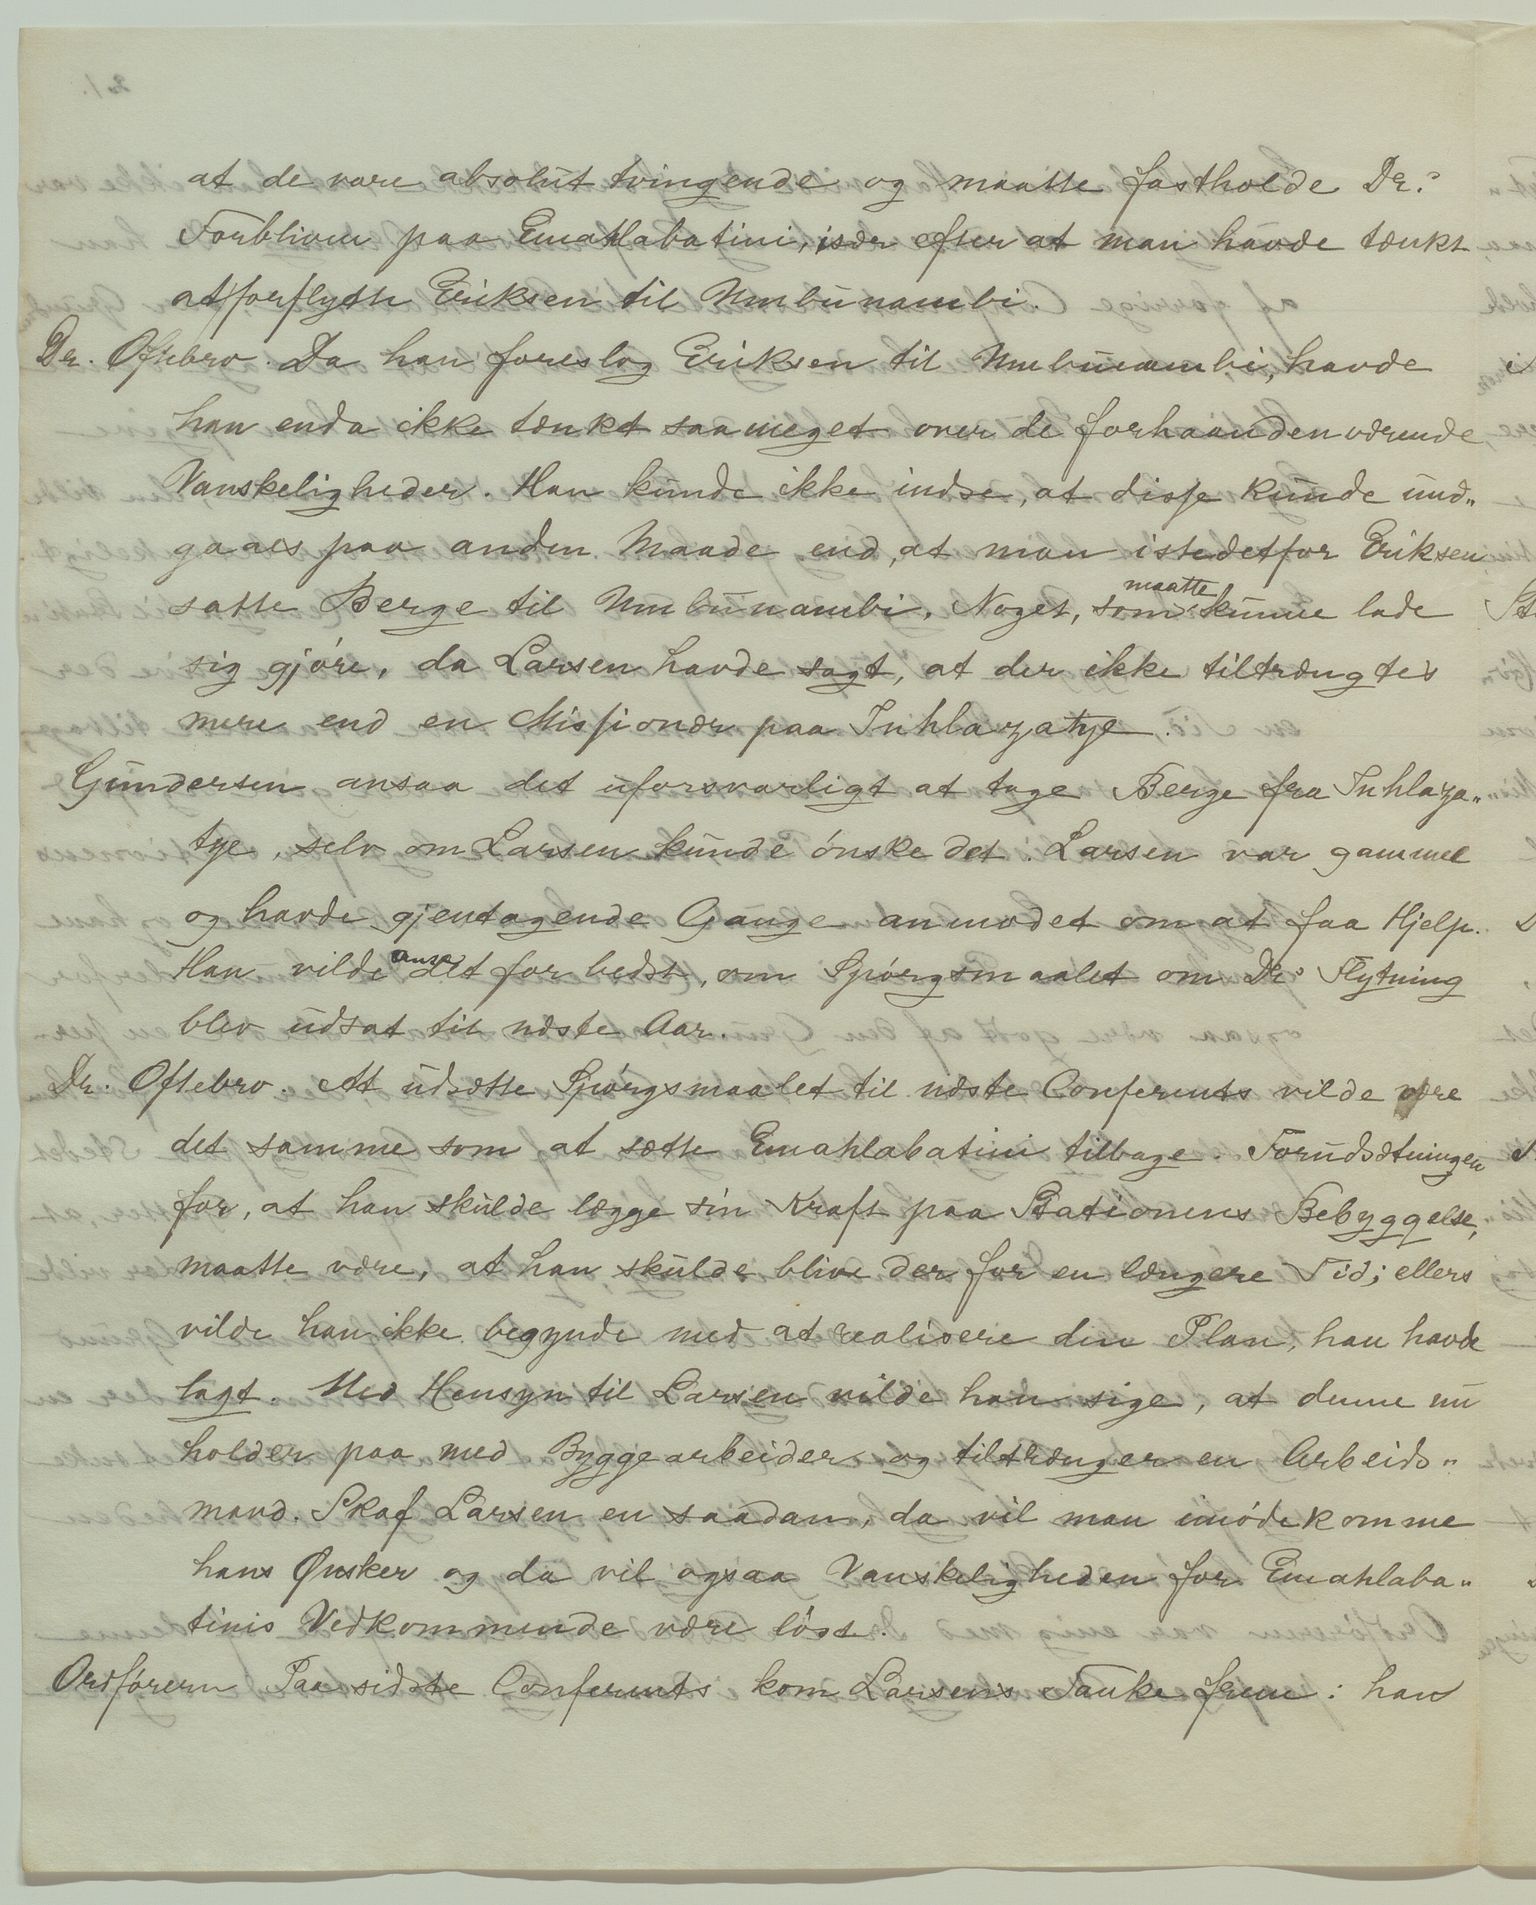 at de vare absolut tvingende og maatte fastholde Dr.s
Forbliven paa Emahlabatini, især efter at man havde tænkt
at forflytte Eriksen til Umbunambi.
Dr. Oftebro. Da han foreslog Eriksen til Umbunambi, havde
han enda ikke tænkt saa meget over de forhaandenværende
Vanskeligheder. Han kunde ikke indse, at disse kunde und„
gaaes paa anden Maade end, at man istedetfor Eriksen
satte Berge til Umbunambi. Noget, som maatte kunne lade
sig gjöre, da Larsen havde sagt, at der ikke tiltrængtes
mere end en Missionær paa Inhlazatye.
Gundersen ansaa det uforsvarligt at tage Berge fra Inhlaza„
tye, selv om Larsen kunde önske det. Larsen var gammel
og havde gjentagende Gange anmodet om at faa Hjelp.
Han vilde anse det for bedst, om Spörgsmaalet om Dr.s Flytning
blev udsat til næste Aar.
Dr. Oftebro. At udsætte Spörgsmaalet til næste Conferents vilde være
det samme som at sætte Emahlabatini tilbage. Forudsætningen
for, at han skulde lægge sin Kraft paa Stationens Bebyggelse,
maatte være, at han skulde blive der for en længere Tid; ellers
vilde han ikke begynde med at realisere den Plan, han havde
lagt. Med Hensyn til Larsen vilde han sige, at denne nu
holder paa med Byggearbeider og tiltrænger en Arbeids„
mand. Skaf Larsen en saadan, da vil man imödekomme
hans Ønsker og da vil ogsaa Vanskeligheden for Emahlaba„
tinis Vedkommende være löst.
Ordföreren Paa sidste Conferents kom Larsens Tanke frem: han